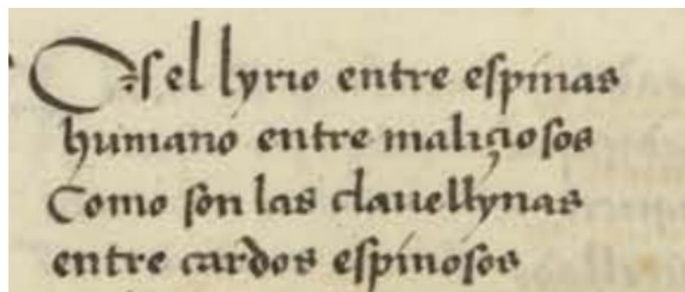 Es el lyrio entre espinas
humano entre maliçiosos
Como son las clauellynas
entre cardos espinosos